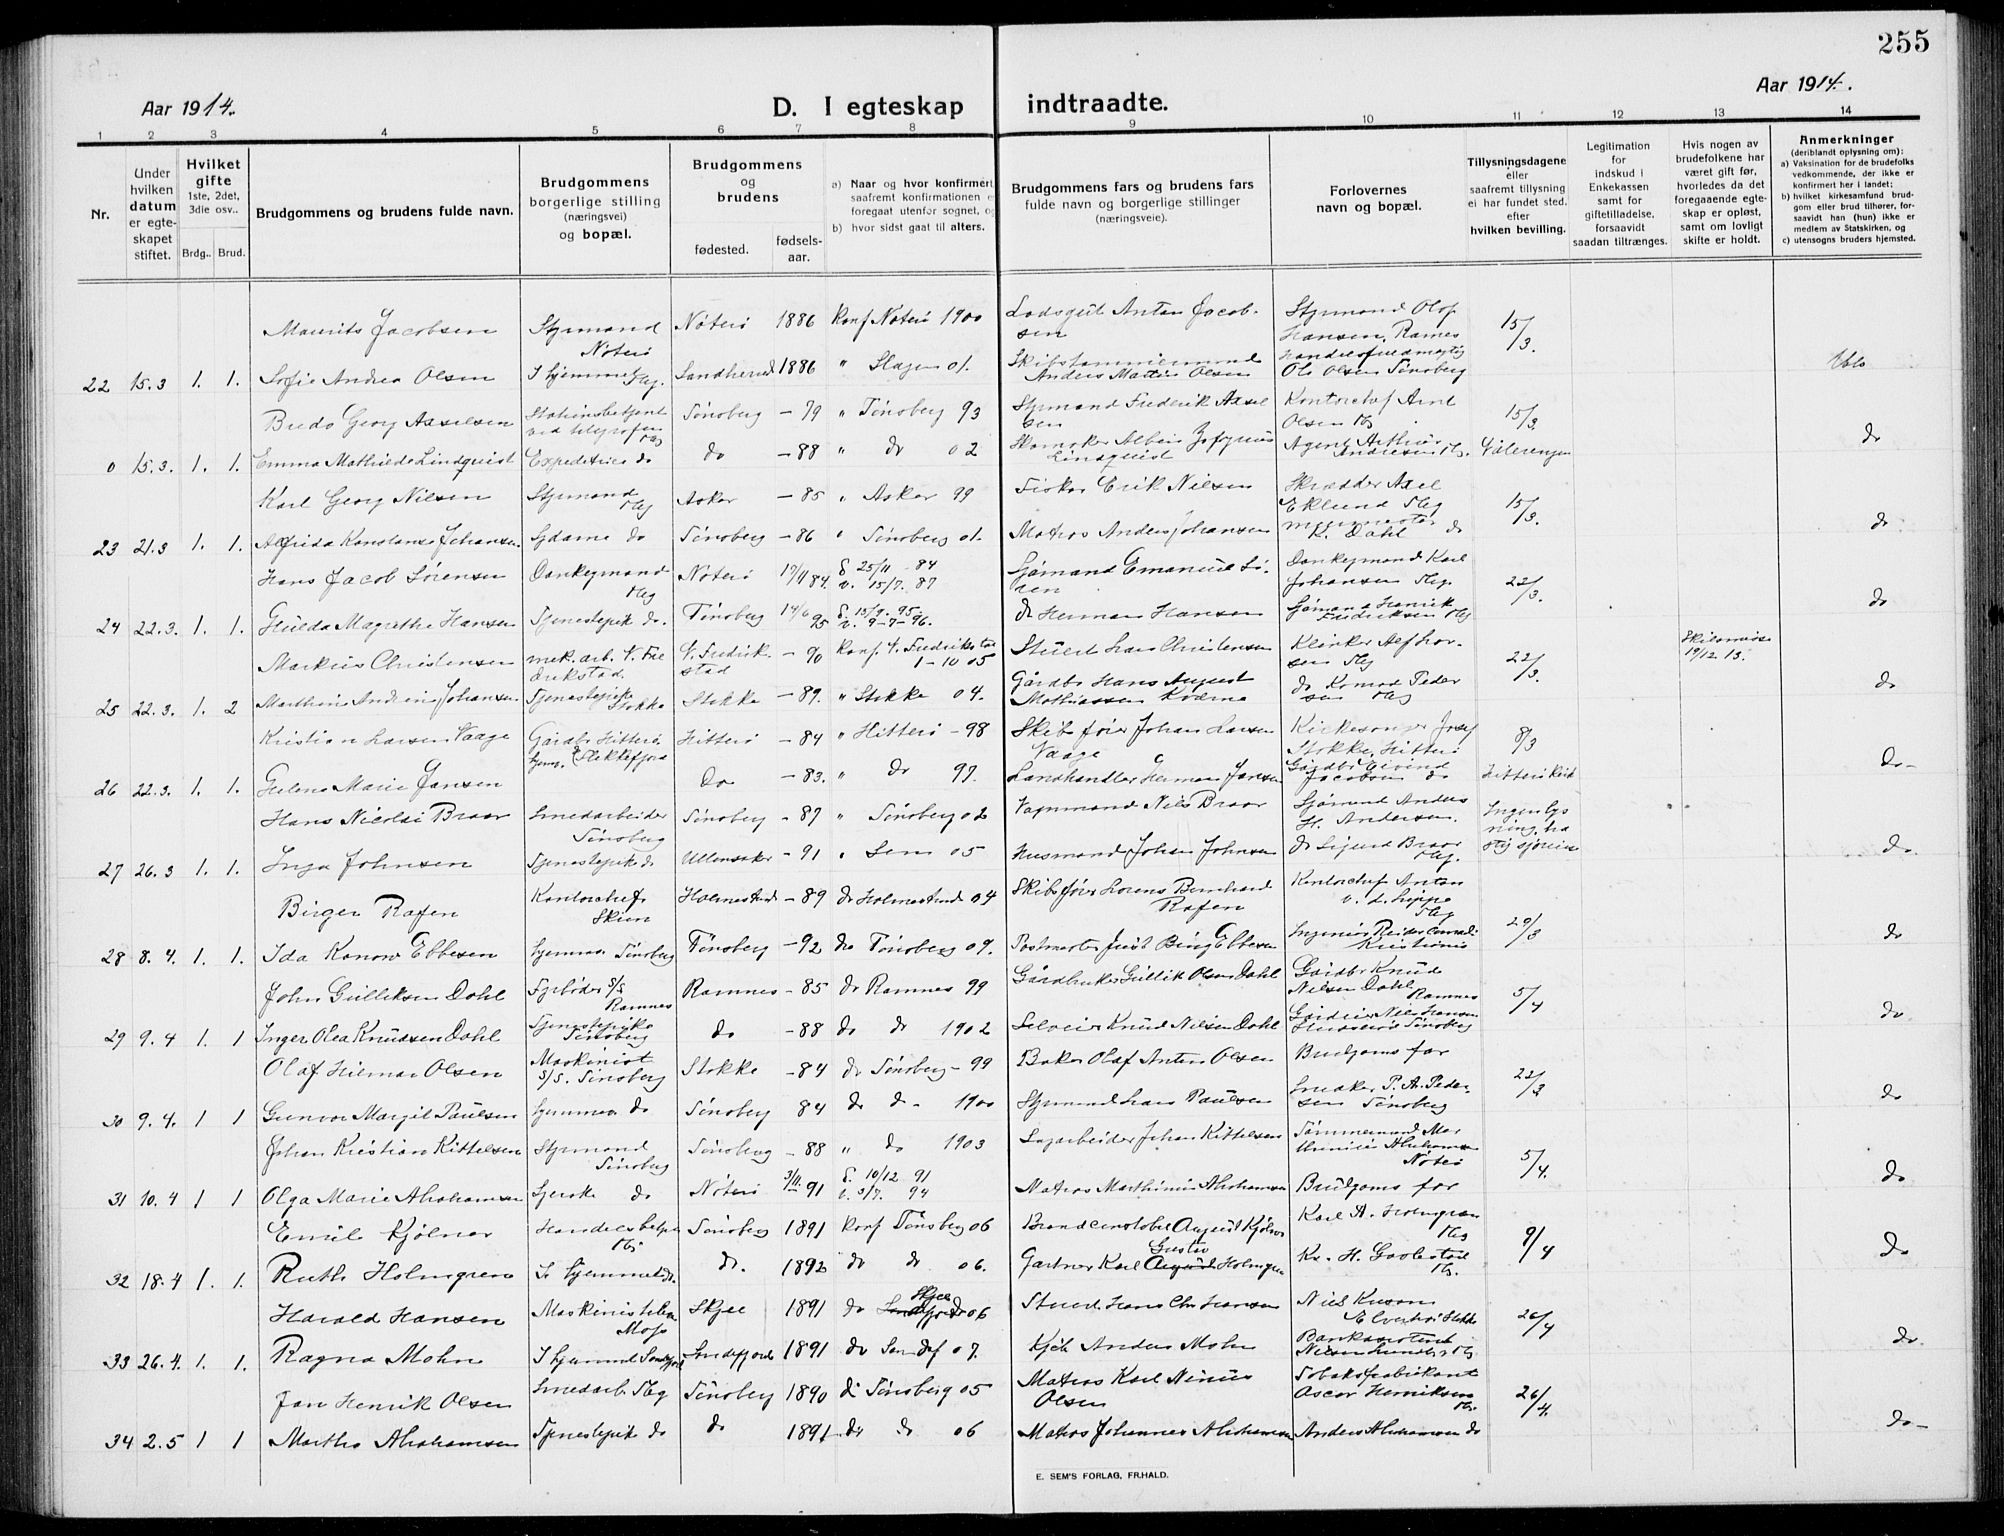 255
Aar 1914.
Aar 1914.
D. I egteskap indtraadte.
1 2 3 4 5 6 7 8 9 10 11 12 13 14
Nr.
Under hvilken datum er egteskapet stiftet.
Hvilket gifte 1ste, 2det, 3die osv..
Brdg.. Brud.
Brudgommens og brudens fulde navn.
Brudgommens borgerlige stilling (næringsvei) og bopæl.
Brudgommens og brudens
fødested. fødsels-aar.
a) Naar og hvor konfirmert,
saafremt konfirmationen e
foregaat utenfor sognet, og
b) hvor sidst gaat til alters.
Brudgommens fars og brudens fars
fulde navn og borgerlige stillinger
(næringsveie).
Forlovernes
navn og bopæl.
Tillysningsdagene
eller
saafremt tillysning
ei har fundet sted,
efter
hvilken bevilling.
Legitimation
for
indskud i
Enkekassen
samt for
giftetilladelse,
forsaavidt
saadan tiltrænges.
Hvis nogen av
brudefolkene har
været gift før,
hvorledes da det
foregaaende egte-
skap er opløst,
samt om lovligt
skifte er holdt.
Anmerkninger
(deriblandt oplysning om):
a) Vaksination for de brudefolks
vedkommende, der ikke er
konfirmert her i landet;
b) hvilket kirkesamfund brud-
gom eller brud tilhører, for-
saavidt han (hun) ikke er
medlem av Statskirken, og
c) utensogns bruders hjemsted.
Maurits Jacobsen Styrmand Nøterø Nøterö 1886 Konf Nøterö 1900 Lodsgut Anton Jacobsen Styrmand Olof Hansen, Ramnes 15/3.
22 15.3 1. 1. Sofie Andrea Olsen I hjemmet Tbg. Sandherred 1886 " Slagen 01. Skibstømmermand Anders Martin Olsen Ole Olsen Tønsberg
Bredo Georg Axselsen Stationsbetjent ved telegrafen Tbg Tønsberg – 79 " Tønsberg 93 Styrmand Frederik Axelsen Kontorchef Arnt Olsen Tbg 15/3.
0 15.3. 1. 1. Emma Mathilde Lindquist Expeditrice do do – 88 " do 02 Skomaker Albin Lindquist Agent Arthur Andresen Tbg. Vålerengen do
Karl Georg Nilsen Styrmand Tbg Asker – 85 " Asker 99 Fisker Erik Nilsen Skrædder Axel Eklund Tbg 15/3.
23 21.3 1. 1. Alfrida Konstanse Johansen Sydame do Tønsberg – 86 " Tønsberg 01. Matros Anders Johansen K. Dahl do do
Hans Jacob Sørensen Donkeymand Tbg Nøterö 17/11 84. d. 25/11 – 84 v. 15/7. 87 Sjømand Emanuel Donkeymand Karl Johansen Tbg. 22/3.
24 22.3. 1. 1. Hulda Magrethe Hansen Tjenestepik do. Tönsberg 14/6 95 d. 15/9. 95. v. 9–7–96. do Herman Hansen Sjømand Henrik Fredriksen Tbg do
Markus Christensen mek. arb. V. Fredrikstad. V. Fredrikstad – 90 Konf. V. Fredrikstad 1–10 05 Stuert Lars Christensen 22/3. 19/12. 13.
25 22.3. 1. 2 Marthine Andrine Johansen Tjenestepike Stokke Stokke – 89. " Stokke 04. Gårdbr Hans August Mathiassen do Konrad Pedersen Tbg do
Kristian Larsen Vaage Gårdbr Hitterö. Flekkefjord Hitterö – 84 " Hitterö – 98 Skibsfører Johan Larsen Vaage Kirkesanger Josef Stokke, Hitterö 8/3
26 22.3. 1. 1. Helene Marie Jansen hjem. Do – 83. " do 97. Landhandler Herman Jansen Gårdbr Eivind Jacobsen do Hitterö Kirk Do–
Hans Nicolai Braar Smedarbeider Tønsberg Tønsberg – 87 " Tønsberg 02 Vognmand Nils Braar Sjømand Anders H. Andersen. Ingen lysning,
27 26.3 1. 1. Inga Johnsen Tjenestepik do Ullensaker – 91 " Sem 05 Husmand Johan Johnsen do Sigurd Braar Tbg. do.
Birger Rafen Kontorchef Skien Holmestrand – 89 do Holmestrand 04 Skibsfører Lorens Bernhard Rafen Kontorchef Anton v. d. Lippe Tbg 29/3
28 8.4. 1. 1. Ida Konow Ebbesen hjemme Tønsberg Tönsberg – 92 do Tønsberg 09. Postmester Just Bing Ebbesen Ingeniör Reidar Conradi Kristiania do
John Gulliksen Dahl Fyrböder S/S Ramnes Ramnes – 85 do Ramnes 99 Gårdbruker Gullik Olsen Dahl Gårdbr Knud Nilsen Dahl Ramnes 5/4
29 9.4 1. 1 Inger Olea Knudsen Dahl Tjenestepike Tønsberg do – 88 do do 1902 Selveier Knud Nilsen Dahl Tønsberg do
Olaf Hilmar Olsen Maskinist S/S. Tønsberg Stokke – 84 do Tønsberg – 99 Baker Olaf Anton Olsen Brudgoms far 22/3
30 9.4. 1 1 Gunvor Margit Paulsen hjemme do Tønsberg 84 do do – 1900 Styrmand Lars Paulsen P. A. Pedersen Tønsberg do
Johan Kristian Kittelsen Styrmand Tønsberg Tønsberg – 88 " do 1903 Johan Kittelsen Tømmermand Marthinius Abrahamsen Nøterö 5/4.
31 10.4 1 1 Olga Marie Abrahamsen do Nøterö 3/11. 91 d. 10/12 91 v. 3/7. 94 Matros Marthinius Abrahamsen Brudgoms far do
Emil Kjølner Tbg Tønsberg 1891 Konf Tønsberg 06 Brandconstabel August Kjølner Karl A. Holmgren Tbg 9/4
32 18.4 1. 1. Ruth Holmgren I hjemmet do. do. 1892 do do 06. Gartner Karl Gustav Holmgren Tbg. do
Harald Hansen Moss Skjee 1891 do Skjee 06 Stuert Hans Chr Hansen 26/4
33 26.4. 1. 1. Ragna Mohn I hjemmet Sandefjord Sandefjord 1891 do Sandef 07. Kjöb Anders Mohn do.
Jan Henrik Olsen Smedarb. Tbg Tønsberg 1890 do Tønsberg 05 Matros Karl Olsen Tobaksfabrikant Oscar Henriksen Tbg. 26/4.
34 2.5 1 1 Martha Abrahamsen Tjenestepik do do 1891 do do 06 Matros Johannes Abrahamsen Anders Abrahamsen do do–
E. SEM'S FORLAG, FR.HALD.